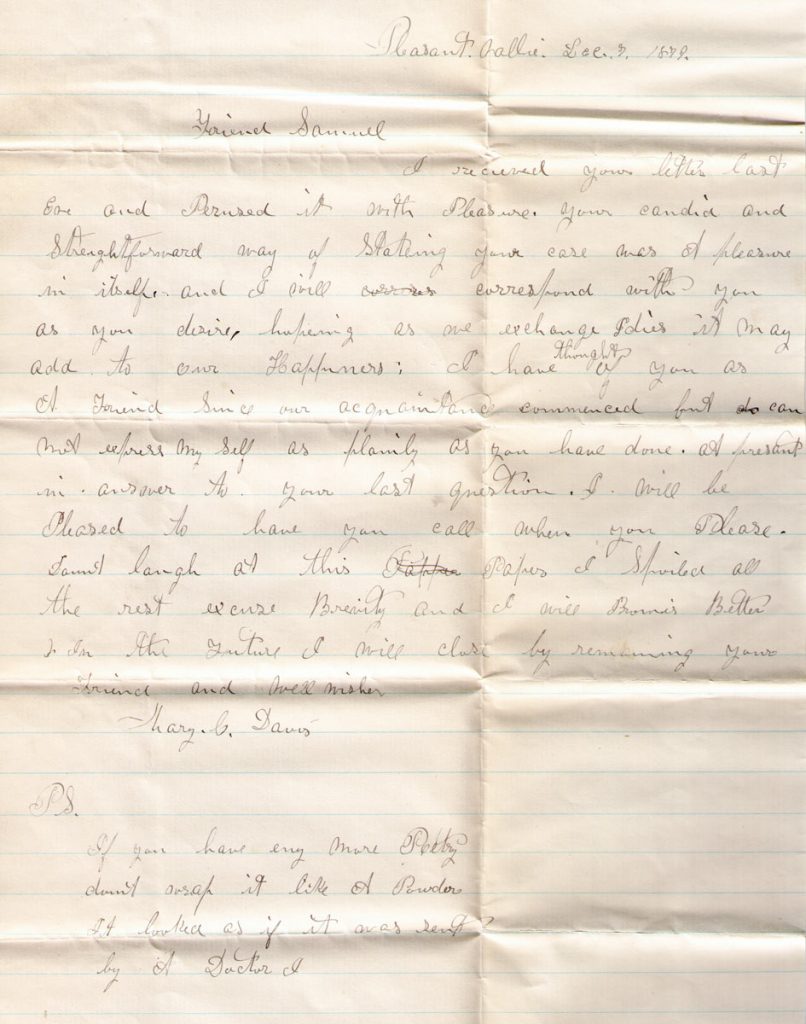 Pleasant. Vallie. Dec. 7. 1879.
Friend Samuel
I recieved your letter last
Eve and Perused it with Pleasure. your candid and
Strenghtforward way of Stateing your case was A pleasure
in itself. and I will corres correspond with you
as you desire, hopeing as we exchange Idies it may
add to our Happiness; I have thought of you as
A Friend Since our acquaintance commenced but do can
not express My Self as plainly as you have done. at present
in answer to your last question. I will be
Pleased to have you call when you Please.
Dount laugh at this Papper I Spoiled all
the rest excuse Brevity and I will Promis Better
In the Future I will close by remaining your
Friend and well wisher
Mary. C. Davis
P S.
If you have eny more Poetry
dount wrap it like A Powder
It looked as if it was sent
by A Doctor I